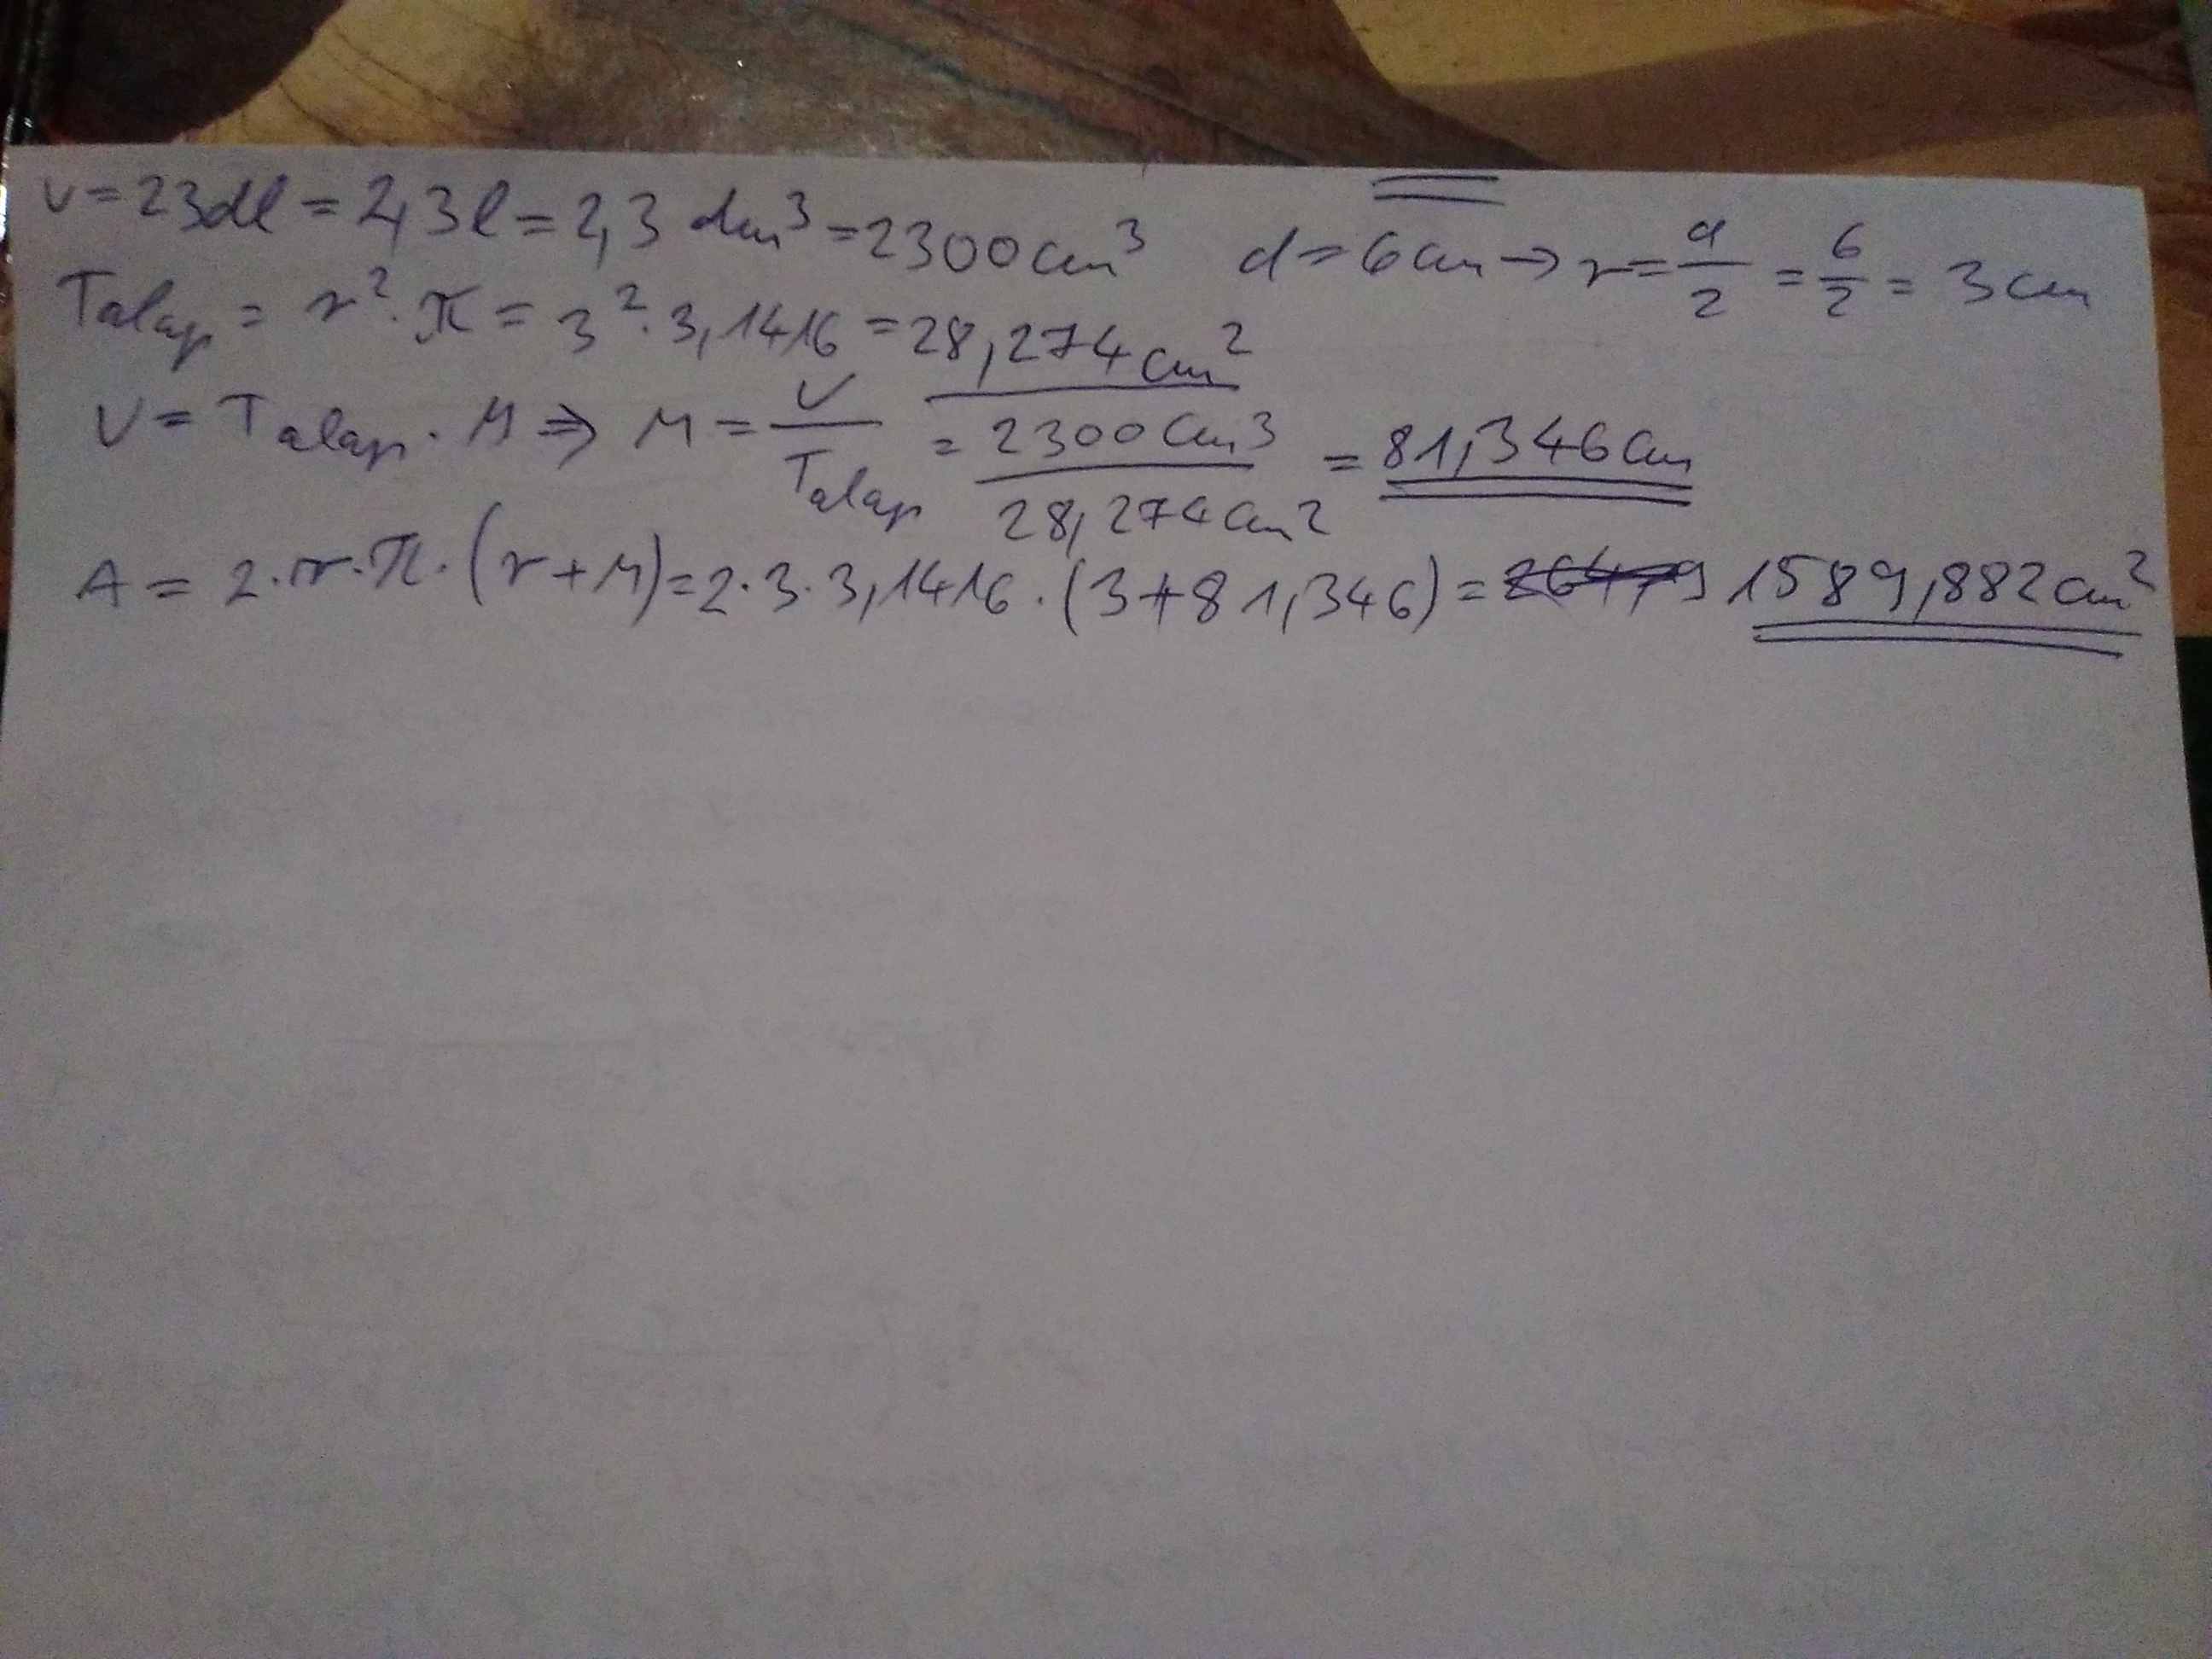 V=23dl=2,3l=2,3 dm³=2300cm³ d=6cm→r=d/2=6/2=3cm
Talap=r²·π=3²·3,1416=28,274cm²
V=Talap·M⇒M=V/Talap=2300cm³/28,274cm²=81,346cm
A=2·r·π·(r+M)=2·3·3,1416·(3+81,346)=1589,882cm²